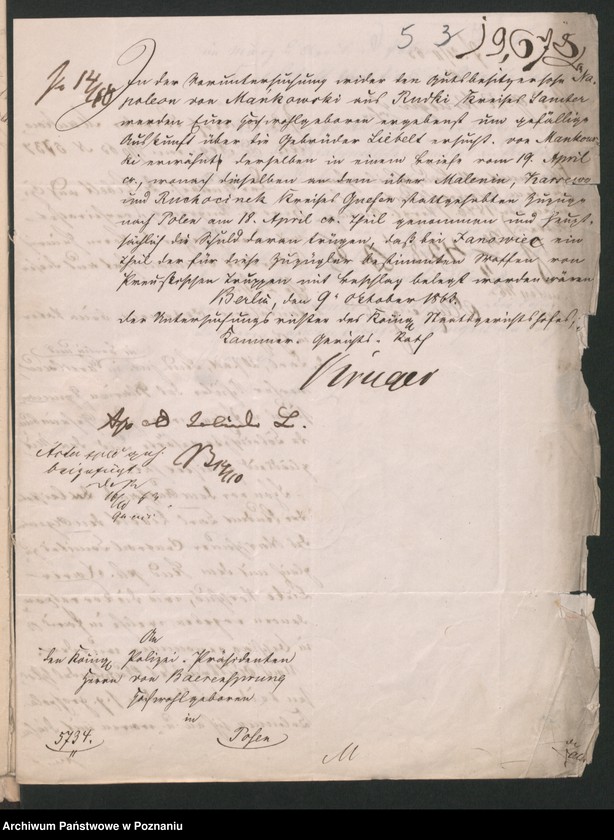 53
19,678
Pr 14/10
In der Voruntersuchung wider den Gutsbesitzersohn Na-
poleon von Mańkowski aus Rudki Kreises Samter
werden Euer Hochwohlgeboren ergebenst um gefällige
Auskunft über die Gebrüder Liebelt ersucht. von Mankows-
ki erwähnt derselben in einem Briefe vom 19. April
cr., wonach dieselben an dem über Malenin, Karsewo
und Ruchocinek Kreises Gnesen stattgehabten Zuzuge
nach Polen am 18. April cr. Theil genommen und haupt-
sächlich die Schuld daran trügen, daß bei Janowiec ein
Theil der für diese Zuzügler bestimmten Waffen von
Preußischen Truppen mit Beschlag belegt worden wären
Berlin, den 9. October 1863.
Der Untersuchungsrichter des Königl. Staatsgerichtshofes,
Kammer-Gerichts-Rath
Krüger
beigefügt
An
den Königl. Polizei-Präsidenten
Herrn von Baerensprung
Hochwohlgeboren
in
5734.
Posen
M
Archiwum Państwowe w Poznaniu